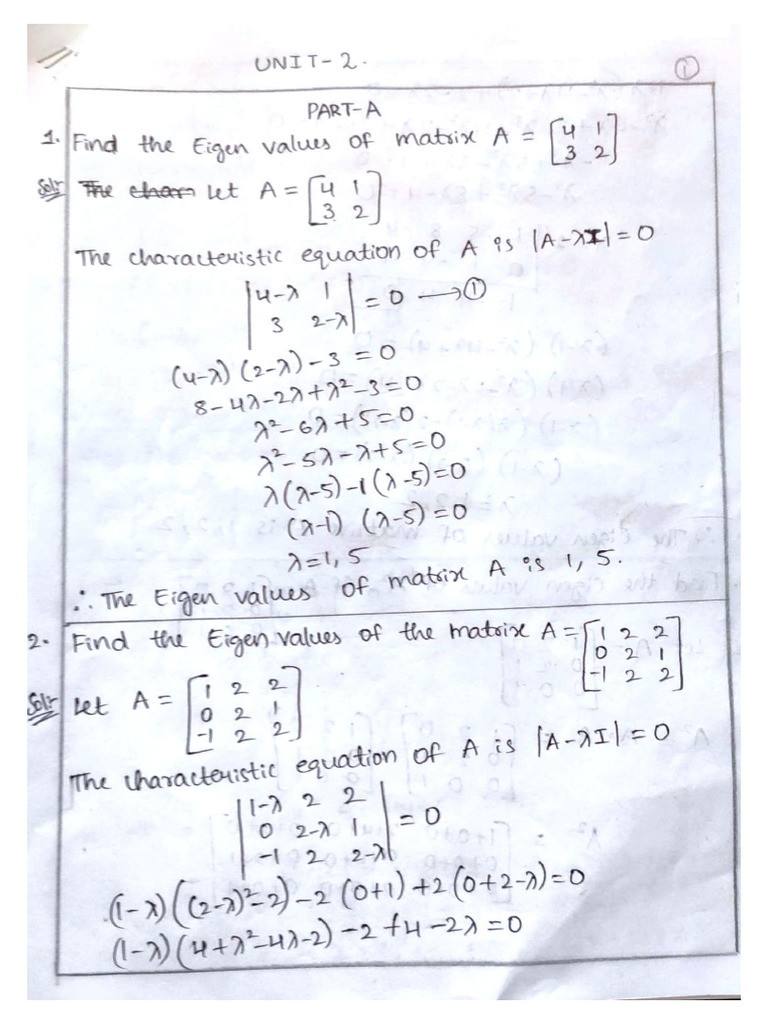 UNIT-2.
①
PART-A
1. Find the Eigen values of matrix A = [4 1
3 2]
Sol:- The charn Let A = [4 1
3 2]
The characteristic equation of A is |A-λI| = 0
|4-λ 1
3 2-λ| = 0 → ①
(4-λ) (2-λ) - 3 = 0
8-4λ-2λ+λ²-3=0
λ²-6λ+5=0
λ²-5λ-λ+5=0
λ(λ-5)-1(λ-5)=0
(λ-1) (λ-5)=0
λ=1,5
∴ The Eigen values of matrix A is 1, 5.
2. Find the Eigen values of the matrix A = [1 2 2
0 2 1
-1 2 2]
Sol:- Let A = [1 2 2
0 2 1
-1 2 2]
The characteristic equation of A is |A-λI| = 0
|1-λ 2 2
0 2-λ 1
-1 2 2-λ| = 0
(1-λ)((2-λ)²-2)-2(0+1)+2(0+2-λ)=0
(1-λ)(4+λ²-4λ-2)-2+4-2λ=0